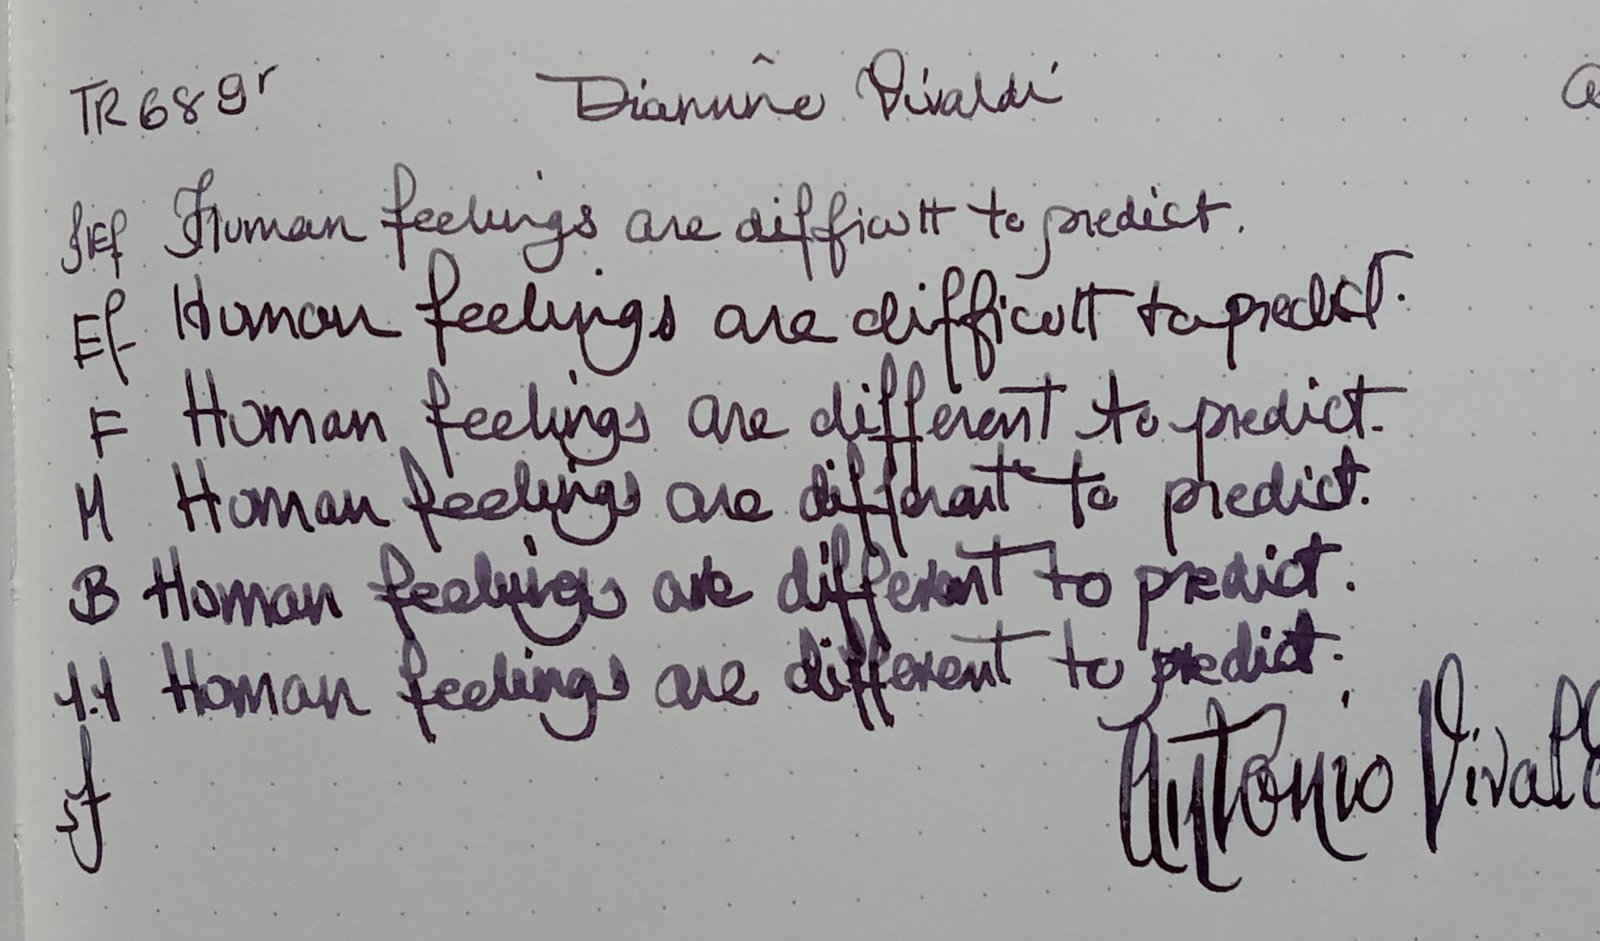 TR 68 gr Diamine Vivaldi
fEf Human feelings are difficult to predict.
Ef Human feelings are difficult to predict.
F Human feelings are different to predict.
M Human feelings are different to predict.
B Human feelings are different to predict.
1.1 Human feelings are different to predict.
sf Antonio Vivald